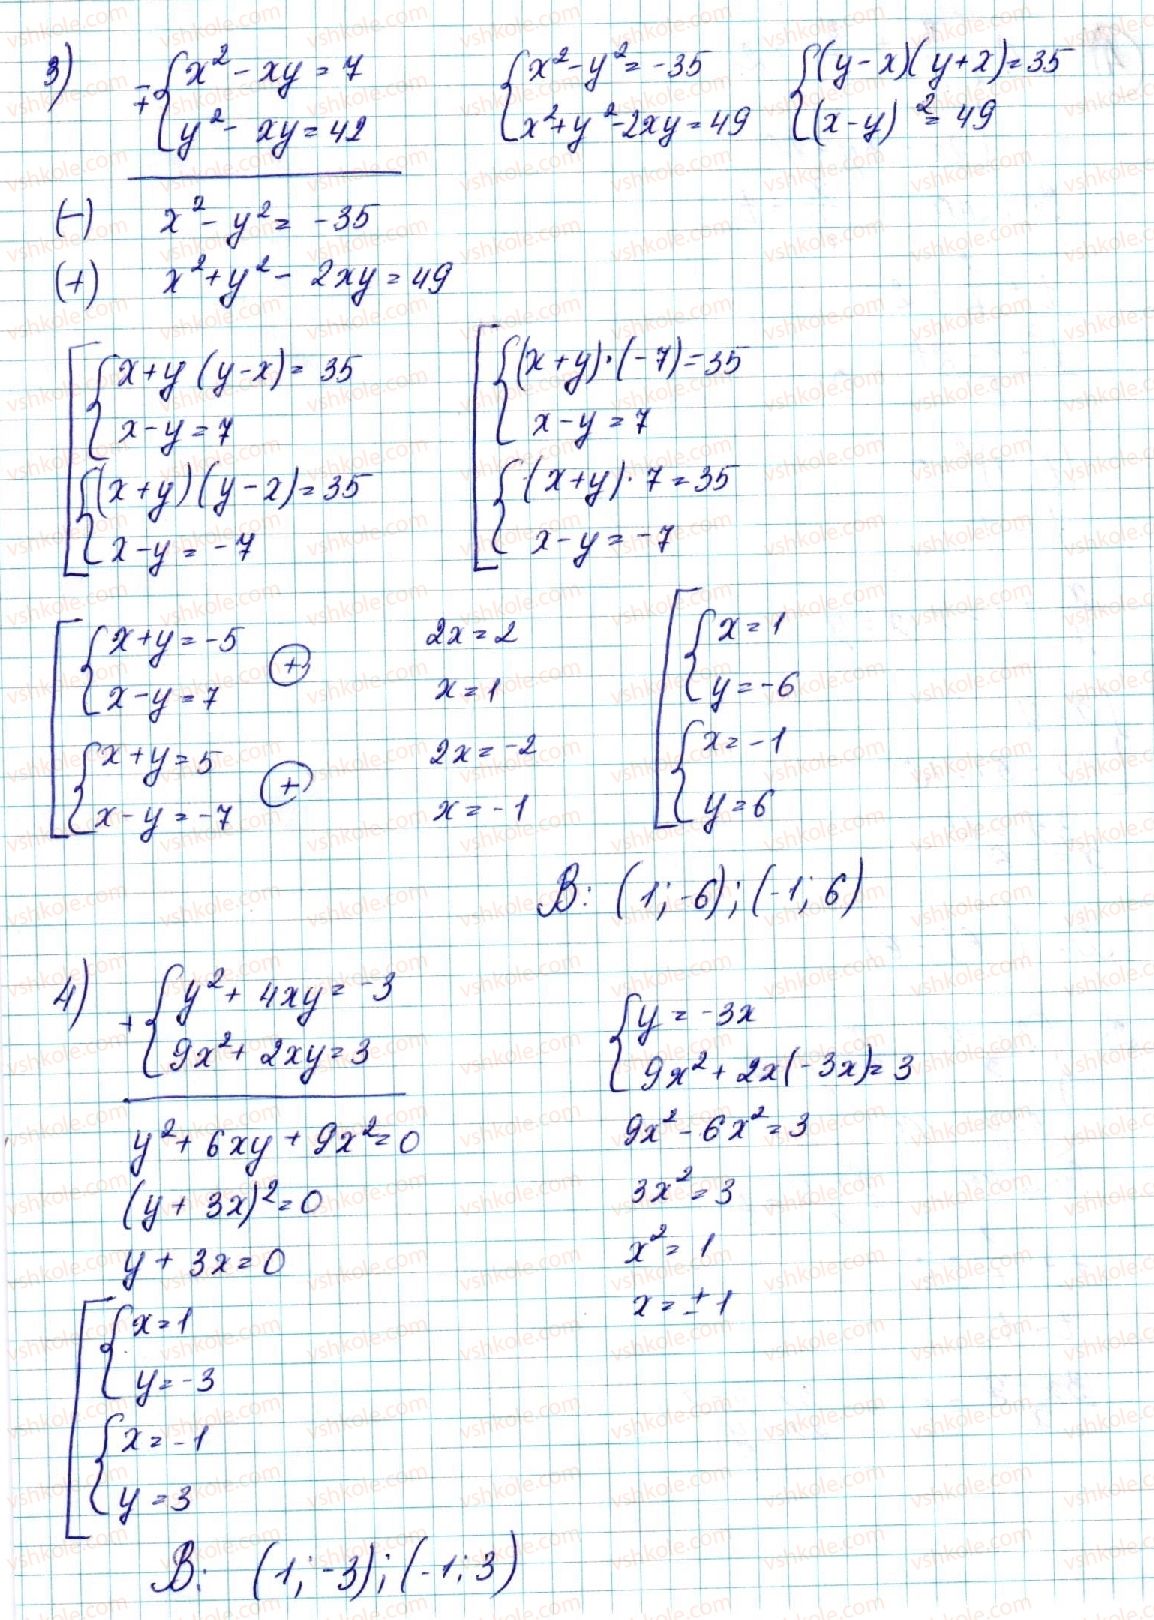 3) ∓ { x² - xy = 7
{ y² - xy = 42
{ x² - y² = -35
{ x² + y² - 2xy = 49
{ (y - x)(y + x) = 35
{ (x - y)² = 49
(-) x² - y² = -35
(+) x² + y² - 2xy = 49
[ { x + y (y - x) = 35
{ x - y = 7
{ (x + y)(y - x) = 35
{ x - y = -7
[ { (x + y) · (-7) = 35
{ x - y = 7
{ (x + y) · 7 = 35
{ x - y = -7
[ { x + y = -5
{ x - y = 7 (+)
{ x + y = 5
{ x - y = -7 (+)
2x = 2
x = 1
2x = -2
x = -1
[ { x = 1
{ y = -6
{ x = -1
{ y = 6
В: (1; -6); (-1; 6)
4) + { y² + 4xy = -3
{ 9x² + 2xy = 3
y² + 6xy + 9x² = 0
(y + 3x)² = 0
y + 3x = 0
{ y = -3x
{ 9x² + 2x(-3x) = 3
9x² - 6x² = 3
3x² = 3
x² = 1
x = ±1
[ { x = 1
{ y = -3
{ x = -1
{ y = 3
В: (1; -3); (-1; 3)
vshkole.com